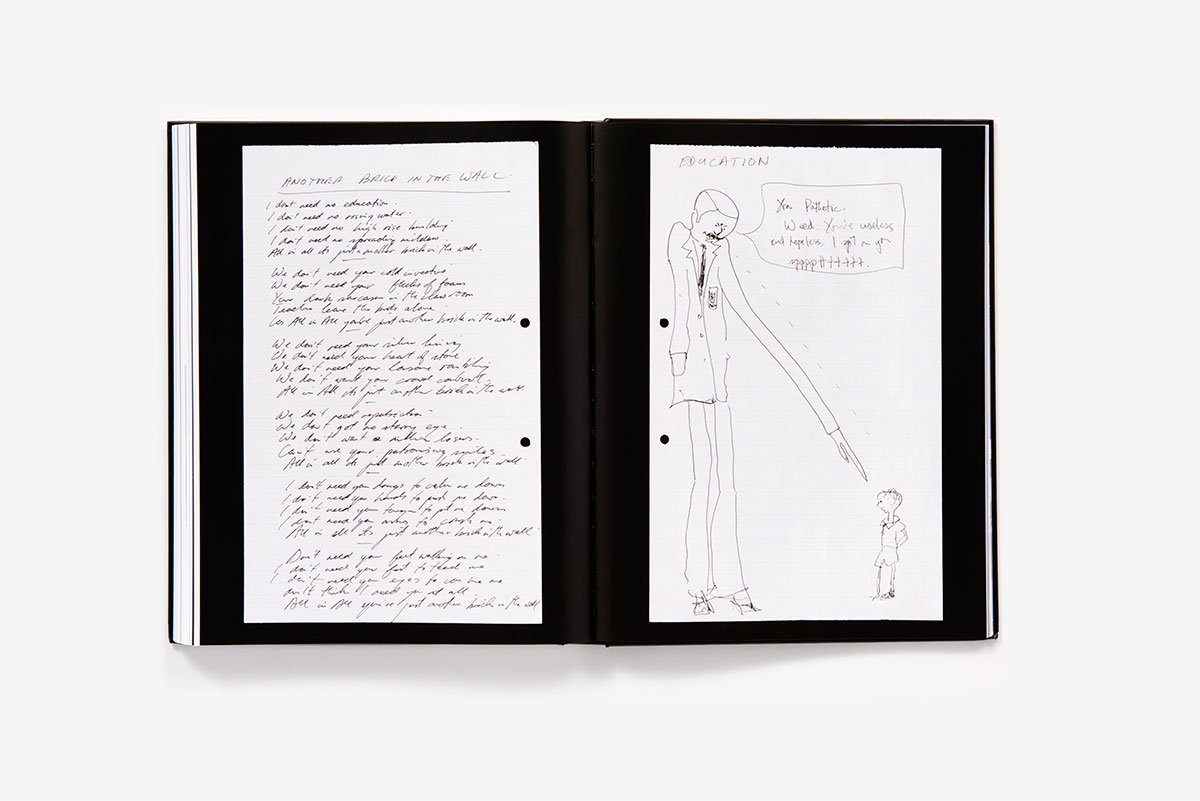 ANOTHER BRICK IN THE WALL.
I don't need no education.
I don't need no rising water.
I don't need no high rise building
I don't need no spreading
All in all its just another brick in the wall.
We don't need your cold
We don't need your of foam
Your dark sarcasm in the classroom
Teacher leave the kids alone
All in All you're just another brick in the wall.
We don't need your silver lining
We don't need your heart of stone
We don't need your rambling
We don't want your crowd control
All in All its just another brick in the wall
We don't need
We don't got no eye.
We don't want losers.
your patronising smiles
All in all its just another brick in the wall
I don't need your to calm me down
I don't need your hands to push me down.
I don't need your to put me down
I don't need your to me.
All in all its just another brick in the wall
Don't need your feet walking on me
I don't need your to me
I don't need your eyes to me
don't think I need you at all
All in All you're just another brick in the wall
EDUCATION
You Pathetic
Weed. You're useless
and hopeless. I spit on you